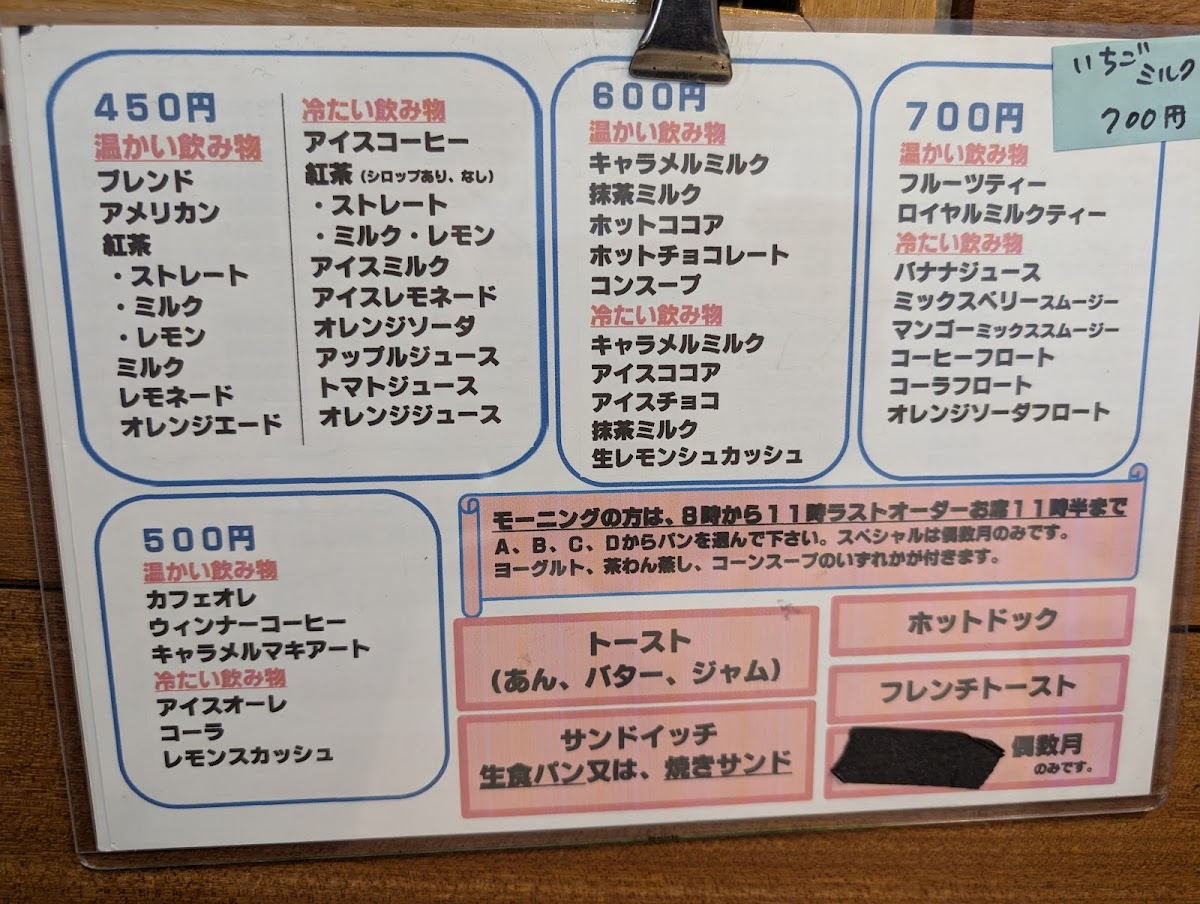 450円
温かい飲み物
ブレンド
アメリカン
紅茶
・ストレート
・ミルク
・レモン
ミルク
レモネード
オレンジエード
冷たい飲み物
アイスコーヒー
紅茶（シロップあり、なし）
・ストレート
・ミルク・レモン
アイスミルク
アイスレモネード
オレンジソーダ
アップルジュース
トマトジュース
オレンジジュース
600円
温かい飲み物
キャラメルミルク
抹茶ミルク
ホットココア
ホットチョコレート
コンスープ
冷たい飲み物
キャラメルミルク
アイスココア
アイスチョコ
抹茶ミルク
生レモンシュカッシュ
700円
温かい飲み物
フルーツティー
ロイヤルミルクティー
冷たい飲み物
バナナジュース
ミックスベリースムージー
マンゴーミックススムージー
コーヒーフロート
コーラフロート
オレンジソーダフロート
いちご
ミルク
700円
500円
温かい飲み物
カフェオレ
ウィンナーコーヒー
キャラメルマキアート
冷たい飲み物
アイスオーレ
コーラ
レモンスカッシュ
モーニングの方は、8時から11時ラストオーダーお席11時半まで
A、B、C、Dからパンを選んで下さい。スペシャルは偶数月のみです。
ヨーグルト、茶わん蒸し、コーンスープのいずれかが付きます。
トースト
（あん、バター、ジャム）
サンドイッチ
生食パン又は、焼きサンド
ホットドック
フレンチトースト
偶数月
のみです。